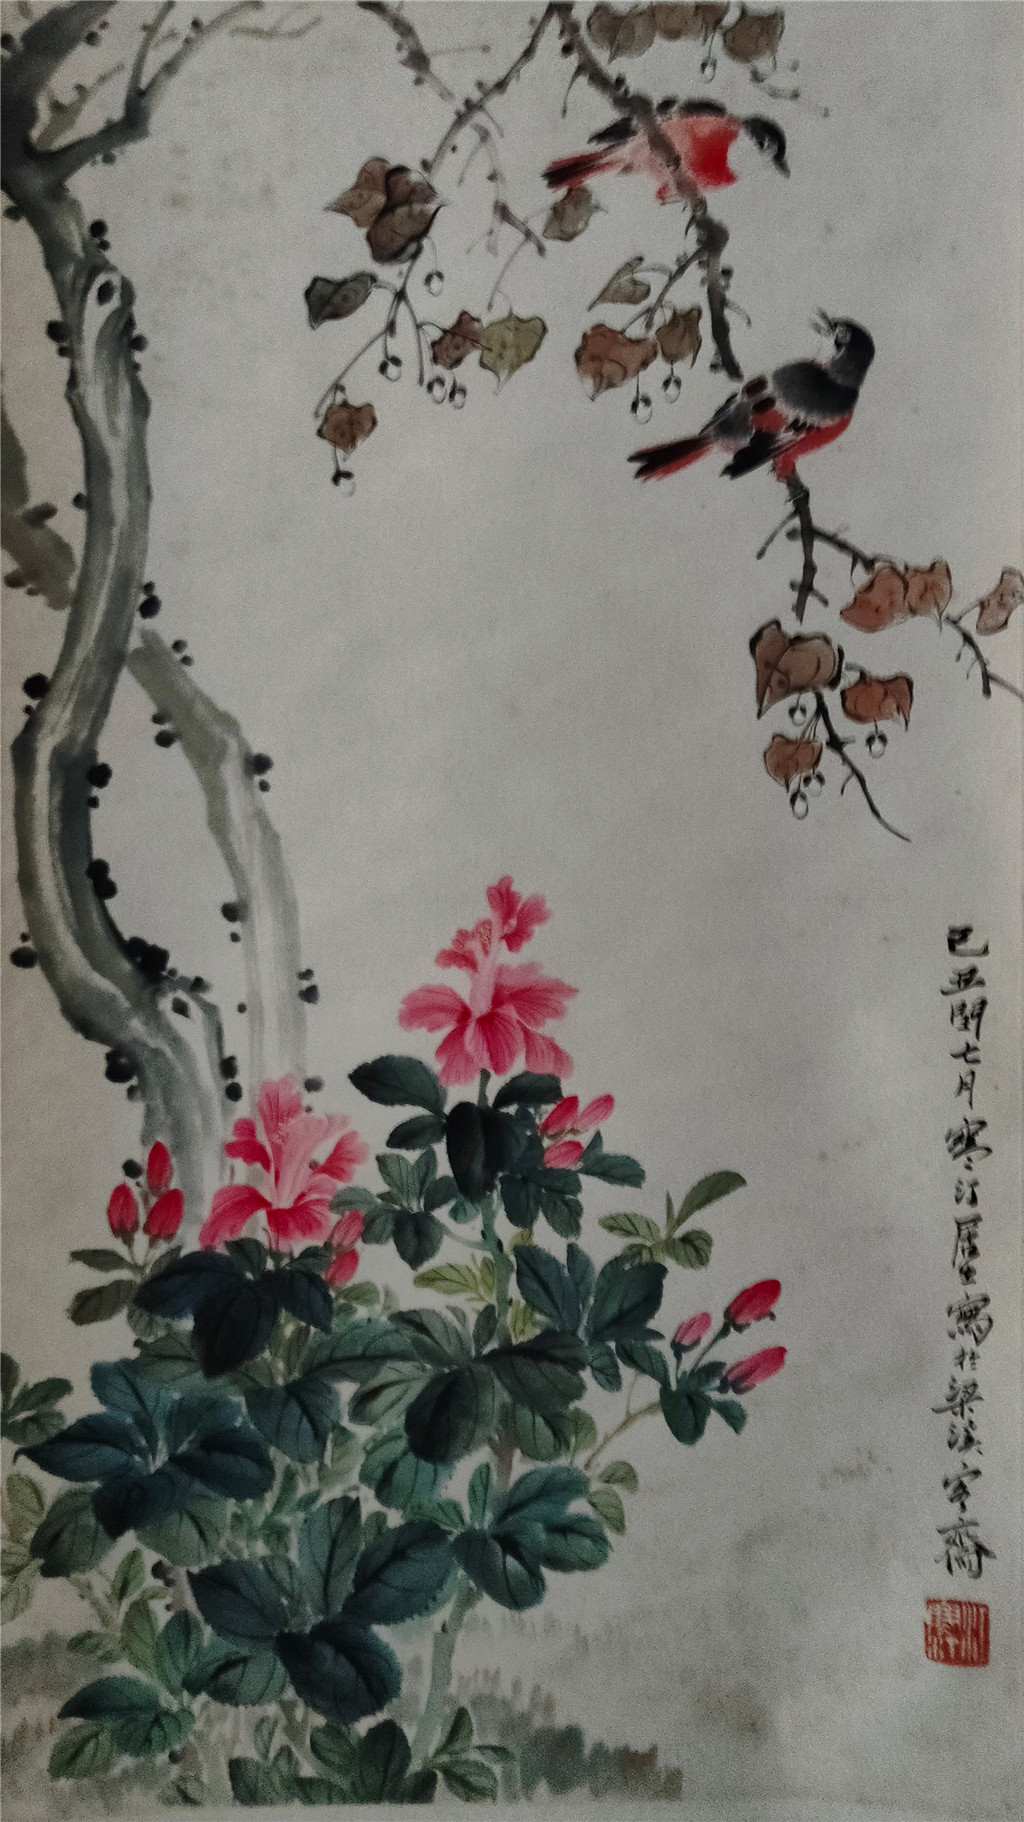 己丑閏七月寒汀居士寫於梁溪寄齋